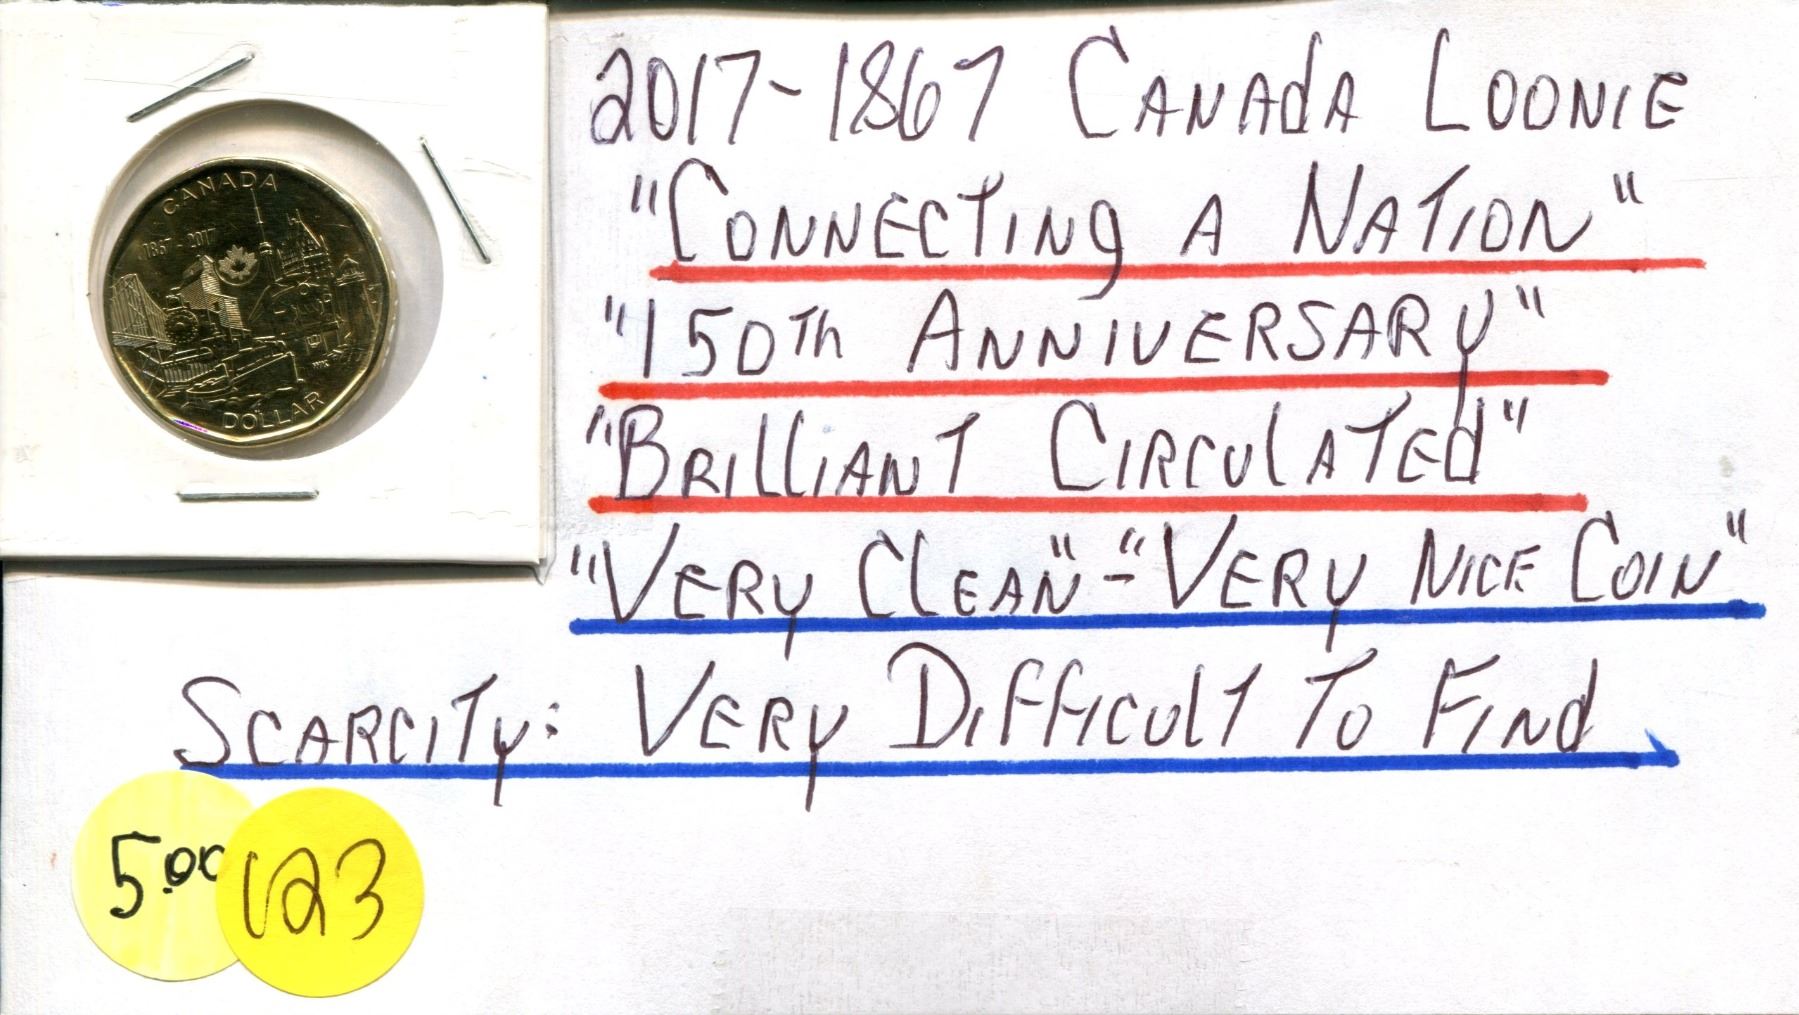 CANADA
1867-2017
DOLLAR
2017-1867 CANADA LOONIE
"CONNECTING A NATION"
"150Th ANNIVERSARY"
"BRILLIANT CIRCULATED"
"VERY CLEAN"-"VERY NICE COIN"
SCARCITY: VERY DIFFICULT TO FIND
5.00
123